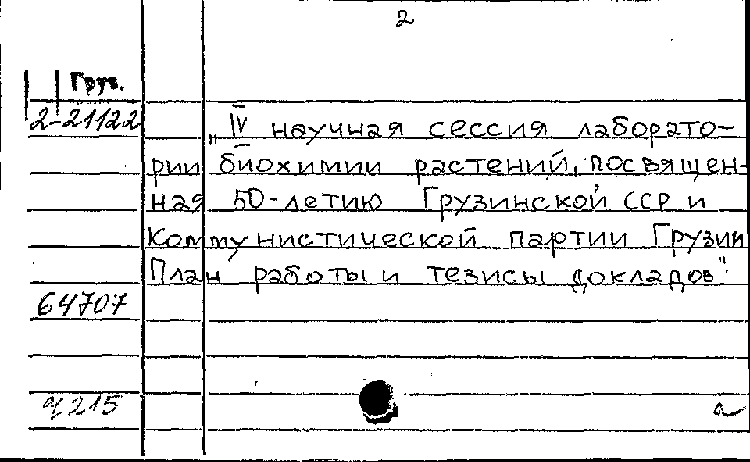 2
Груз.
2-21122
„IV научная сессия лаборато-
рии биохимии растений, посвящен-
ная 50-летию Грузинской ССР и
Коммунистической партии Грузии
План работы и тезисы докладов"
64707